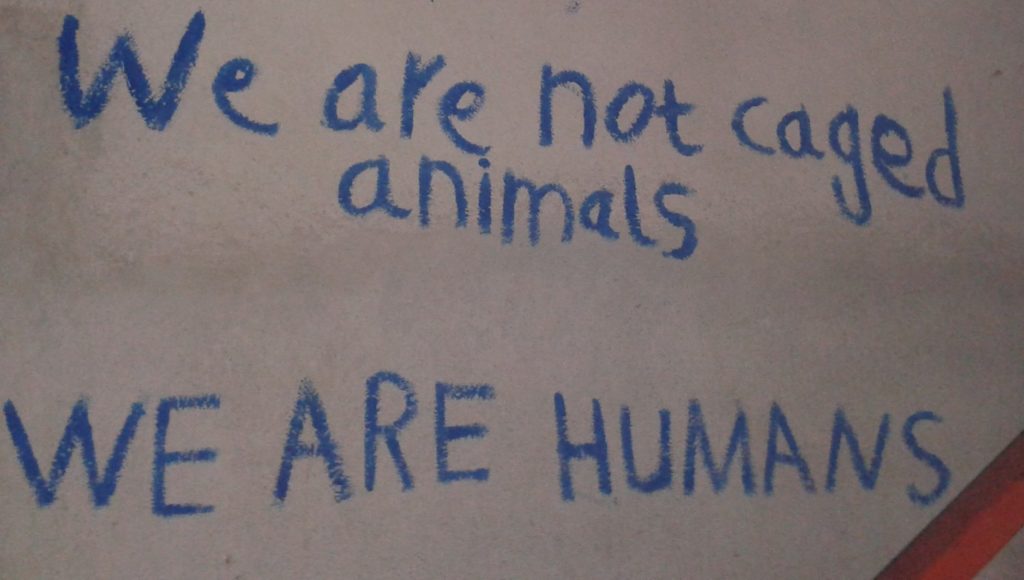 We are not caged
animals
WE ARE HUMANS